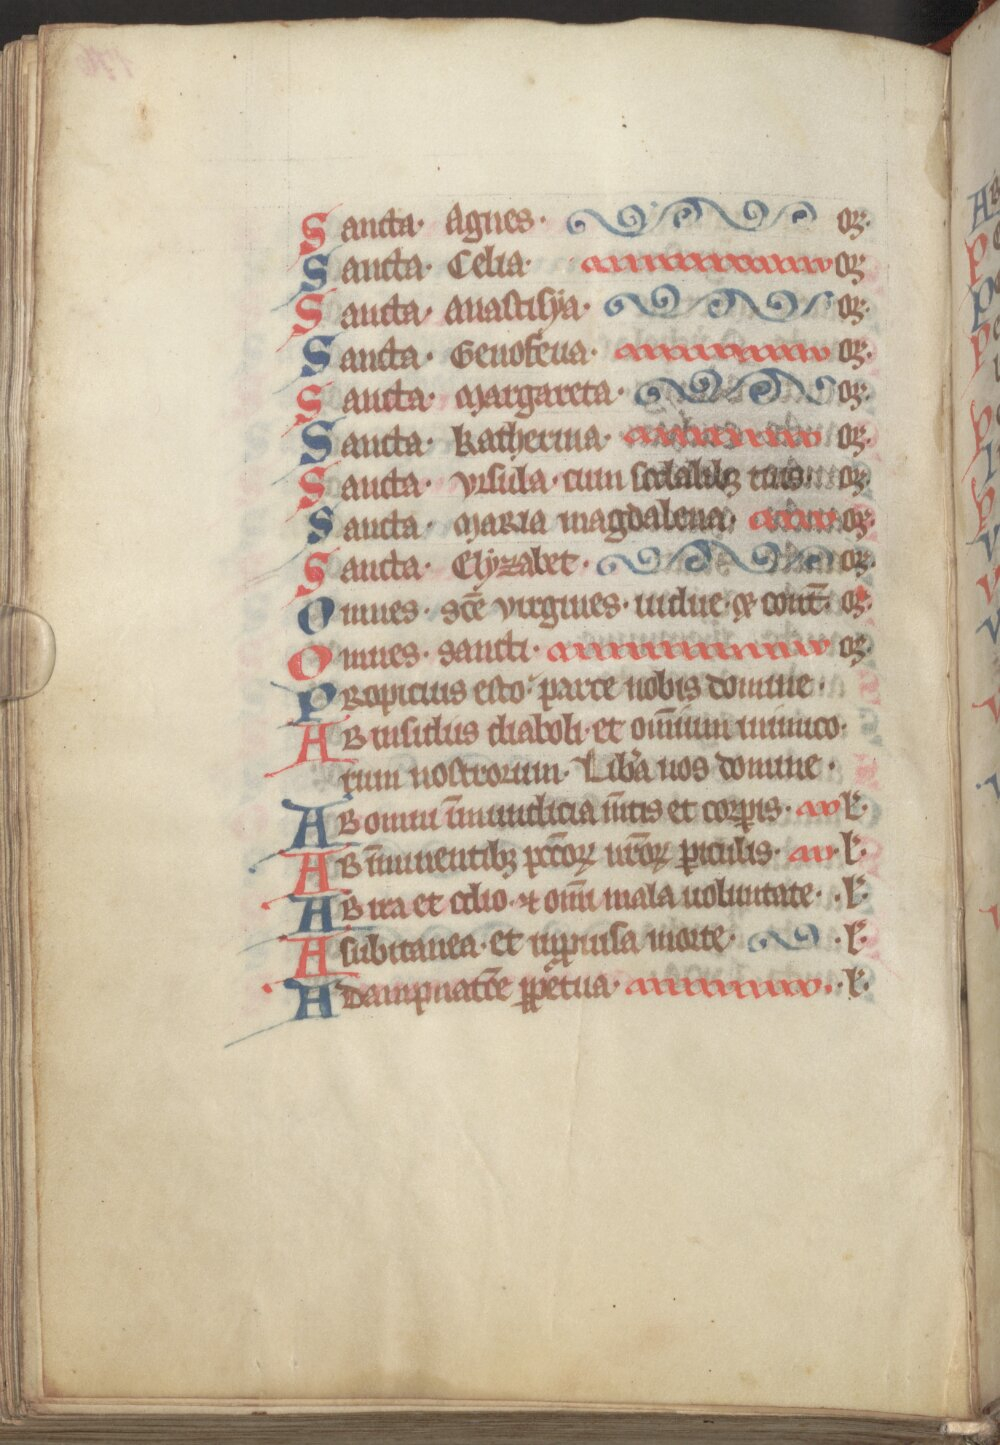 Sancta · Agnes · or.
Sancta · Celia · or
Sancta · Anastisya · or.
Sancta · Genofeua · or.
Sancta · Margareta · or.
Sancta · Katherina · or.
Sancta · vrsula · cum sodalibꝫ tuis · or.
Sancta · Maria magdalena · or.
Sancta · Elyzabet · or.
Omnes · sc̄e virgines · uidue · ⁊ cont̄ · or.
Omnes · sancti · or.
Propicius esto · parce nobis domine ·
Ab insidiis diaboli · et om̄ium inimico·
rum nostrorum · Lib̾a nos domine ·
Ab omni īmundicia m̄tis et corꝑis · l̾ ·
Ab īminentibꝫ pcc̄oꝝ nr̄oꝝ ꝑiculis · l̾ ·
Ab ira et odio · ⁊ om̄i mala uoluntate · l̾ ·
A subitanea · et inꝓuisa morte · l̾ ·
A dampnatōe ꝑpetua · l̾ ·